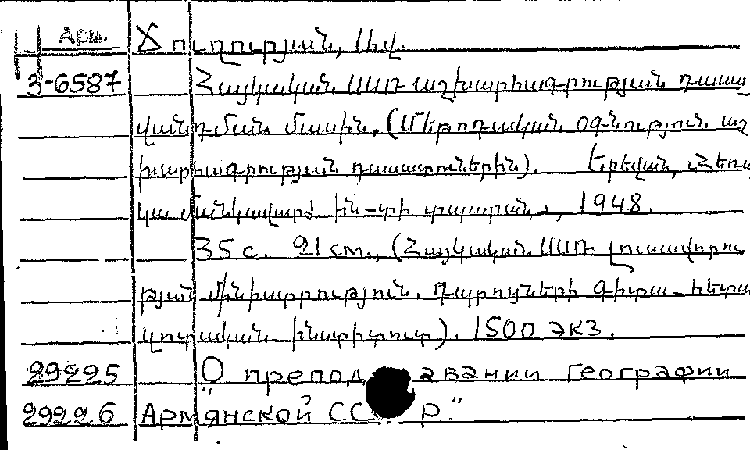 Арм. Ճուղուրյան, Ավ.
3-6587 Հայկական ՍՍՌ աշխարհագրության դասա
վանդման մասին. (Մեթոդական օգնություն աշ
խարհագրության դասատուներին). Երեվան, Հեռա
կա մանկավարժ. ին-տի տպարան, 1948.
35 с. 21 см., (Հայկական ՍՍՌ լուսավորու
թյան մինիստրություն. Դպրոցների գիտա-հետա
զոտական ինստիտուտ). 1500 экз.
29225 "О преподавании географии
29226 Армянской ССР."